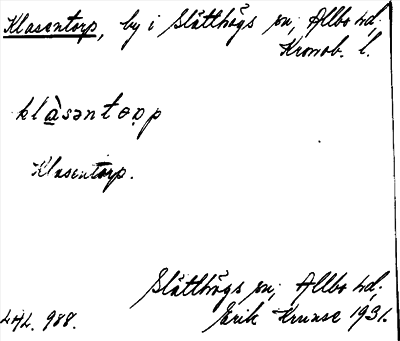 Klasentorp, by i Slätthögs sn; Allbo hd,
Kronob. l.
klàsəntoṛp
Klasentorp.
Slätthögs sn; Allbo hd.
988. Erik 1931.